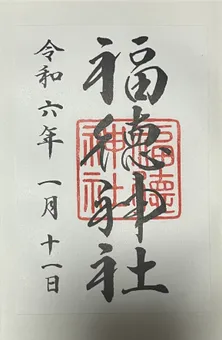 福徳神社
福徳
神社
令和六年一月十一日